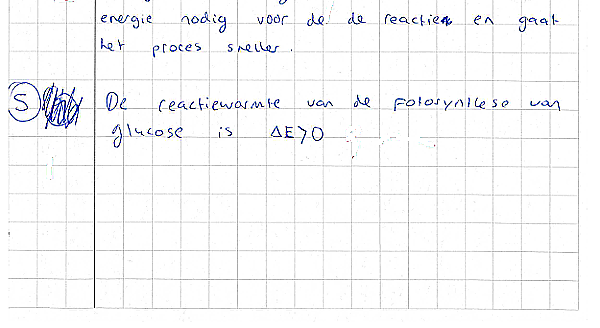 energie nodig voor de de reacties en gaat
het proces sneller.
5 De reactiewarmte van de Fotosynthese van
glucose is ΔE>0